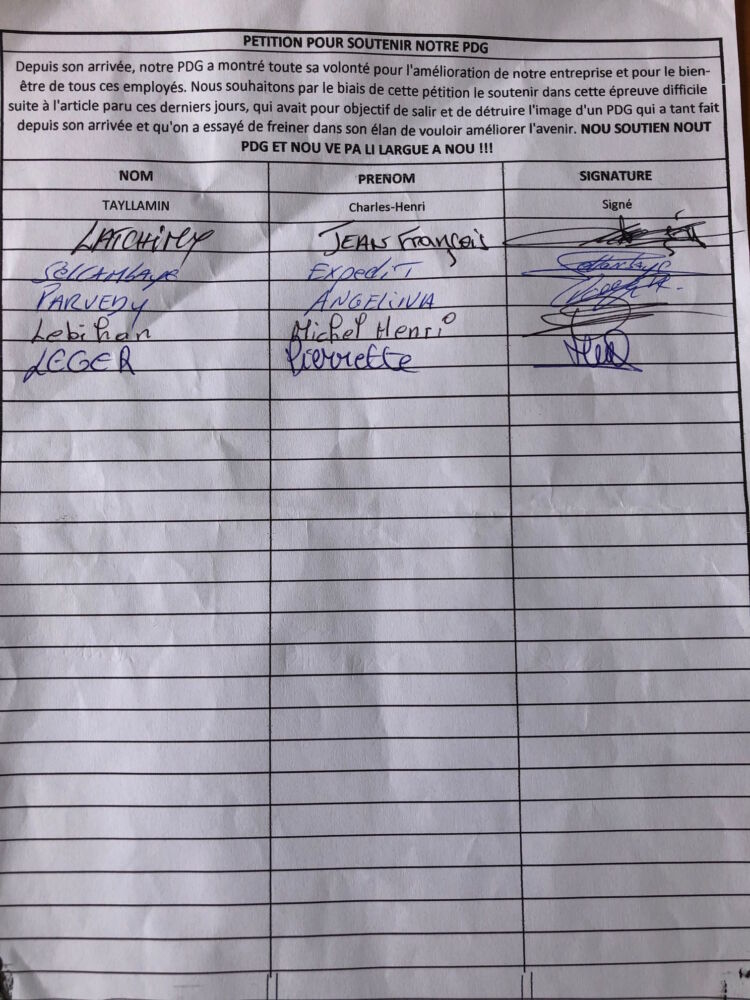 PETITION POUR SOUTENIR NOTRE PDG
Depuis son arrivée, notre PDG a montré toute sa volonté pour l'amélioration de notre entreprise et pour le bien-
être de tous ces employés. Nous souhaitons par le biais de cette pétition le soutenir dans cette épreuve difficile
suite à l'article paru ces derniers jours, qui avait pour objectif de salir et de détruire l'image d'un PDG qui a tant fait
depuis son arrivée et qu'on a essayé de freiner dans son élan de vouloir améliorer l'avenir. NOU SOUTIEN NOUT
PDG ET NOU VE PA LI LARGUE A NOU !!!
NOM PRENOM SIGNATURE
TAYLLAMIN Charles-Henri Signé
JEAN François
SELLAMBAYE EXPEDIT
PARVEDY ANGELINA
Lebihan Michel Henri
LEGER Pierrette